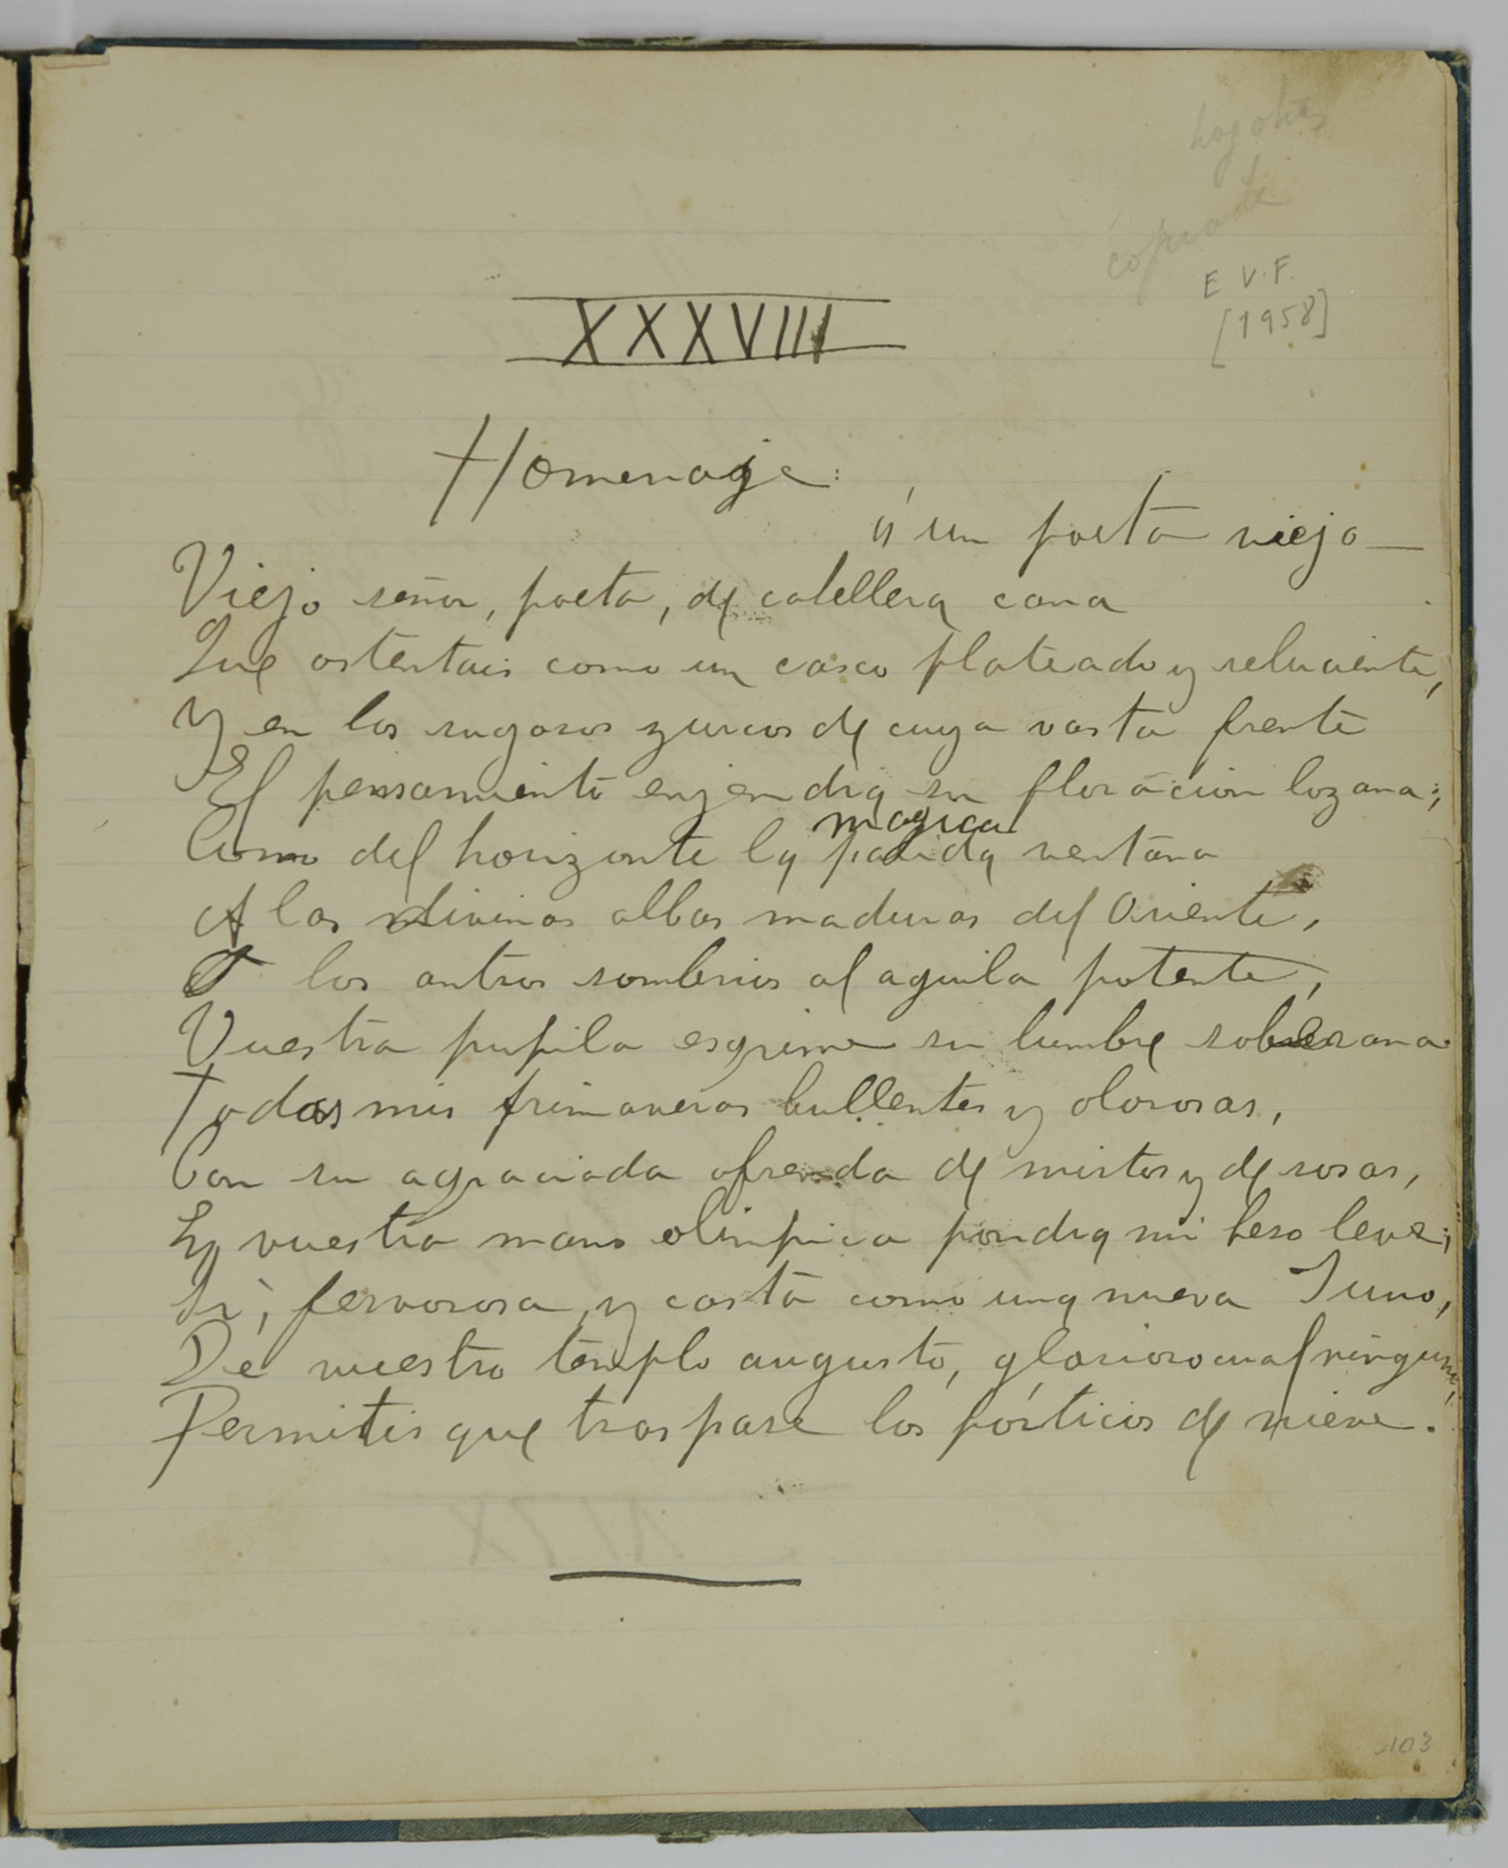 E V. F.
[1958]
XXXVIII
Homenaje:
á un poeta viejo—
Viejo señor, poeta, de cabellera cana
Que ostentais como un casco plateado y reluciente,
Y en los rugosos zurcos de cuya vasta frente
El pensamiento enjendra su floracion lozana;
magica
Como del horizonte la palida ventana
A las divinas albas maduras del Oriente,
O los antros sombrios al aguila potente,
Vuestra pupila esgrime su lumbre soberana.
Todas mis primaveras bullentes y olorosas,
Con su agraciada ofrenda de mirtos y de rosas,
En vuestra mano olimpica pondra mi beso leve;
Si, fervorosa, y casta como una nueva Juno,
De vuestro templo augusto, glorioso cual ninguno,
Permitis que traspase los pórticos de nieve.
103